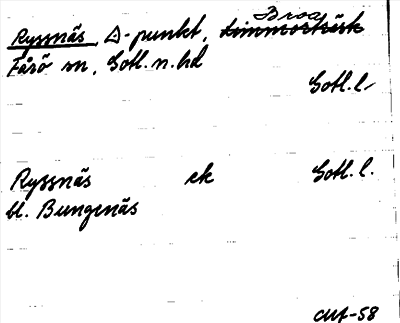 Broa
Ryssnäs Δ-punkt, timmerkärk
Fårö sn, Gotl. n. hd
Gotl. l.
Ryssnäs ek Gotl. l.
bl. Bungenäs
-58